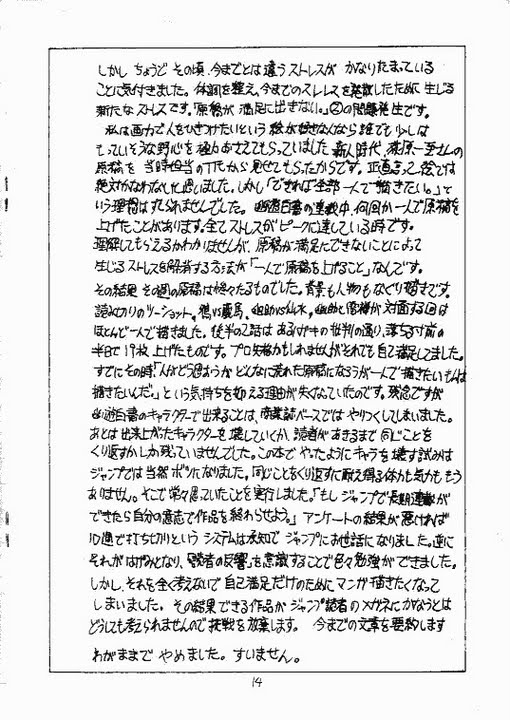 しかし ちょうど その頃、今までとは違う ストレスが かなりたまっている
ことに気付きました。体調を整え、今までのストレスを発散したために 生じる
新たな ストレスです。「原稿が 満足に出きない。」②の問題発生です。
私は画力で人をひきつけたいという 絵が好きな人なら 誰でも 少しは
もっていそうな野心を 極力おさえてもらっていました。新人時代、萩原一至さんの
原稿を 当時担当のTTKから見せてもらったからです。正直言って絵では
絶対かなわないと思いました。しかし「できれば全部 一人で描きたい。」と
いう理想はすてられませんでした。幽遊白書の連載中、何回か一人で原稿を
上げたことがあります。全てストレスが ピークに達している時です。
理解してもらえるかわかりませんが、原稿が満足にできないことによって
生じるストレスを解消する方法が「一人で原稿を上げること」なんです。
その結果 その週の原稿は散々なものでした。背景も人物もなぐり描きです。
読み切りのツーショット。鴉vs蔵馬、幽助vs仙水、幽助と雷禅が対面する回は
ほとんど一人で描きました。後半の2話は あるハガキの批判の通り、落ちる寸前の
半日で19枚 上げたものです。プロ失格かもしれませんがそれでも自己満足してました。
すでにその時「人がどう思おうがどんなに荒れた原稿になろうが一人で描きたいもんは
描きたいんだ。」という気持ちを抑える理由が失くなっていたのです。残念ですが
幽遊白書のキャラクターで出来ることは、商業誌ベースでは やりつくしてしまいました。
あとは出来上がったキャラクターを壊していくか、読者があきるまで同じことを
くり返すかしか残っていませんでした。この本でやったようにキャラを壊す試みは
ジャンプでは当然ボツになりました。同じことをくり返すに耐え得る体力も気力ももう
ありません。そこで常々思っていたことを実行しました。「もし ジャンプで長期連載が
できたら自分の意志で作品を終わらせよう。」アンケートの結果が悪ければ
10週で打ち切りという システムは承知で ジャンプにお世話になりました。逆に
それがはげみとなり、「読者の反響」を意識することで色々勉強ができました。
しかし、それを全く考えないで 自己満足だけのためにマンガ描きたくなって
しまいました。その結果できる作品が ジャンプ読者のメガネにかなうとは
どうしても考えられませんので挑戦を放棄します。 今までの文章を要約します
わがままで やめました。すいません。
14